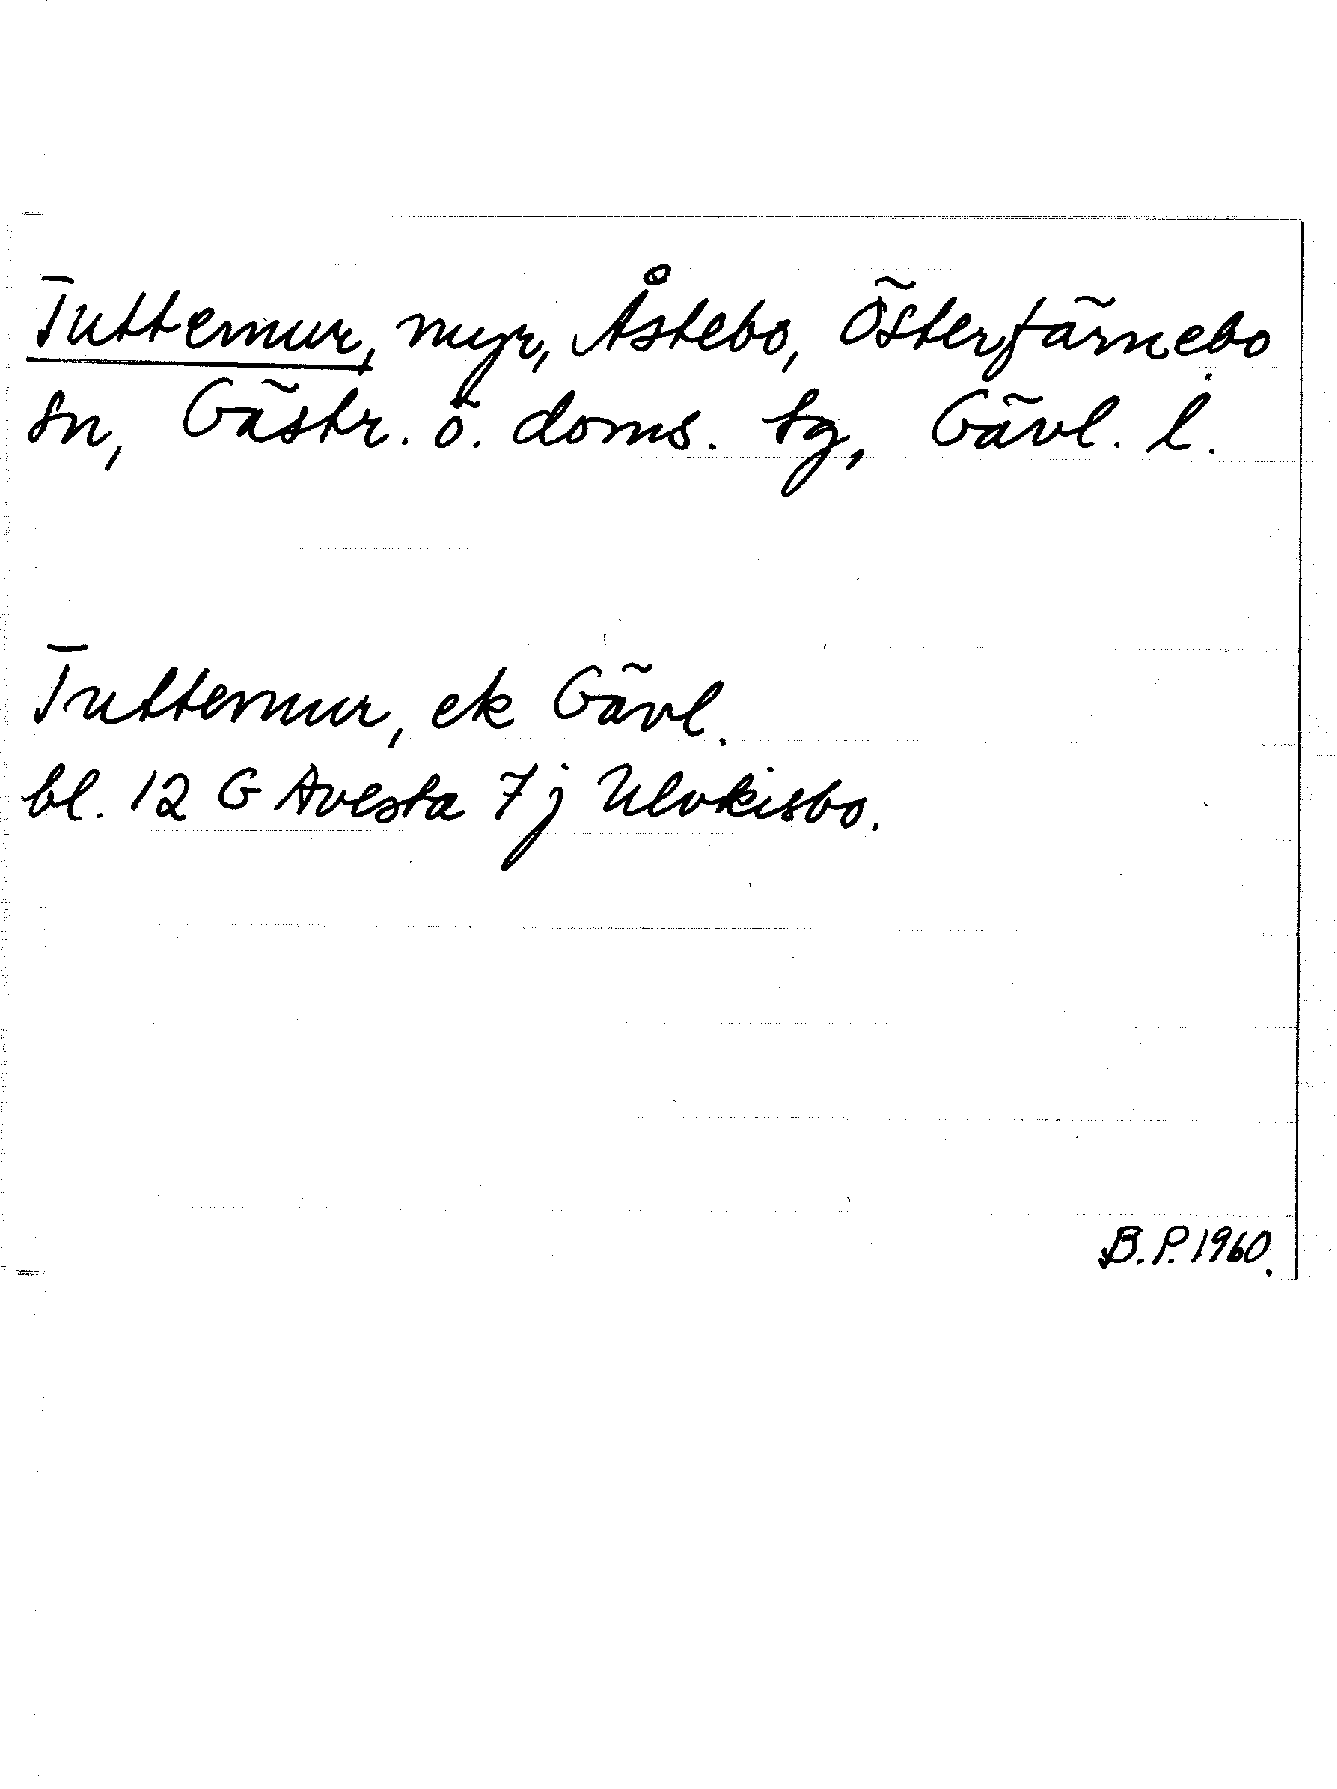 Tuttemur, myr, Åstebo, Österfärnebo
sn, Gästr. ö. doms. sg, Gävl. l.
Tuttemur, ek Gävl.
bl. 12 G Avesta 7 j Ulvkisbo.
B. P. 1960.